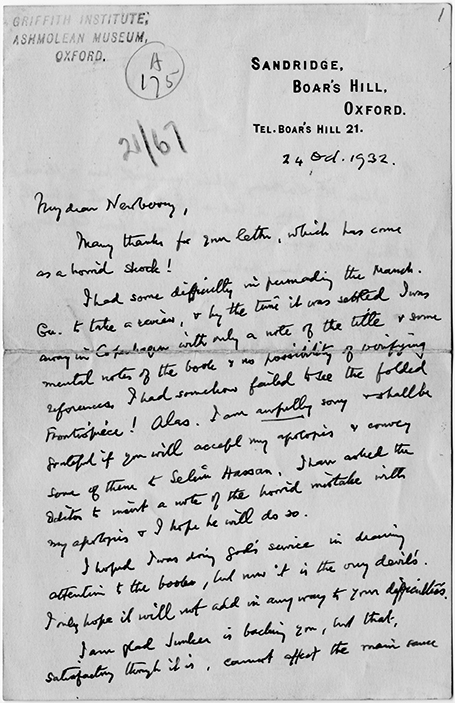 GRIFFITH INSTITUTE,
ASHMOLEAN MUSEUM,
OXFORD.
A
175
21/67
1
SANDRIDGE,
BOAR'S HILL,
OXFORD.
TEL. BOAR'S HILL 21.
24 Oct. 1932.
My dear Newberry,
Many thanks for your letter, which has come
as a horrid shock!
I had some difficulty in persuading the Manch.
Gu. to take a review, & by the time it was settled I was
away in Copenhagen with only a note of the title & some
mental notes of the book & no possibility of verifying
references. I had somehow failed to see the folded
Frontispiece! Alas. I am awfully sorry & shall be
grateful if you will accept my apologies & convey
some of them to Selim Hassan. I have asked the
Editor to insert a note of the horrid mistake with
my apologies & I hope he will do so.
I hoped I was doing God's service in drawing
attention to the book, but now it is the very devil's.
I only hope it will not add in any way to your difficulties.
I am glad Junker is backing you, but that,
satisfactory though it is, cannot affect the main